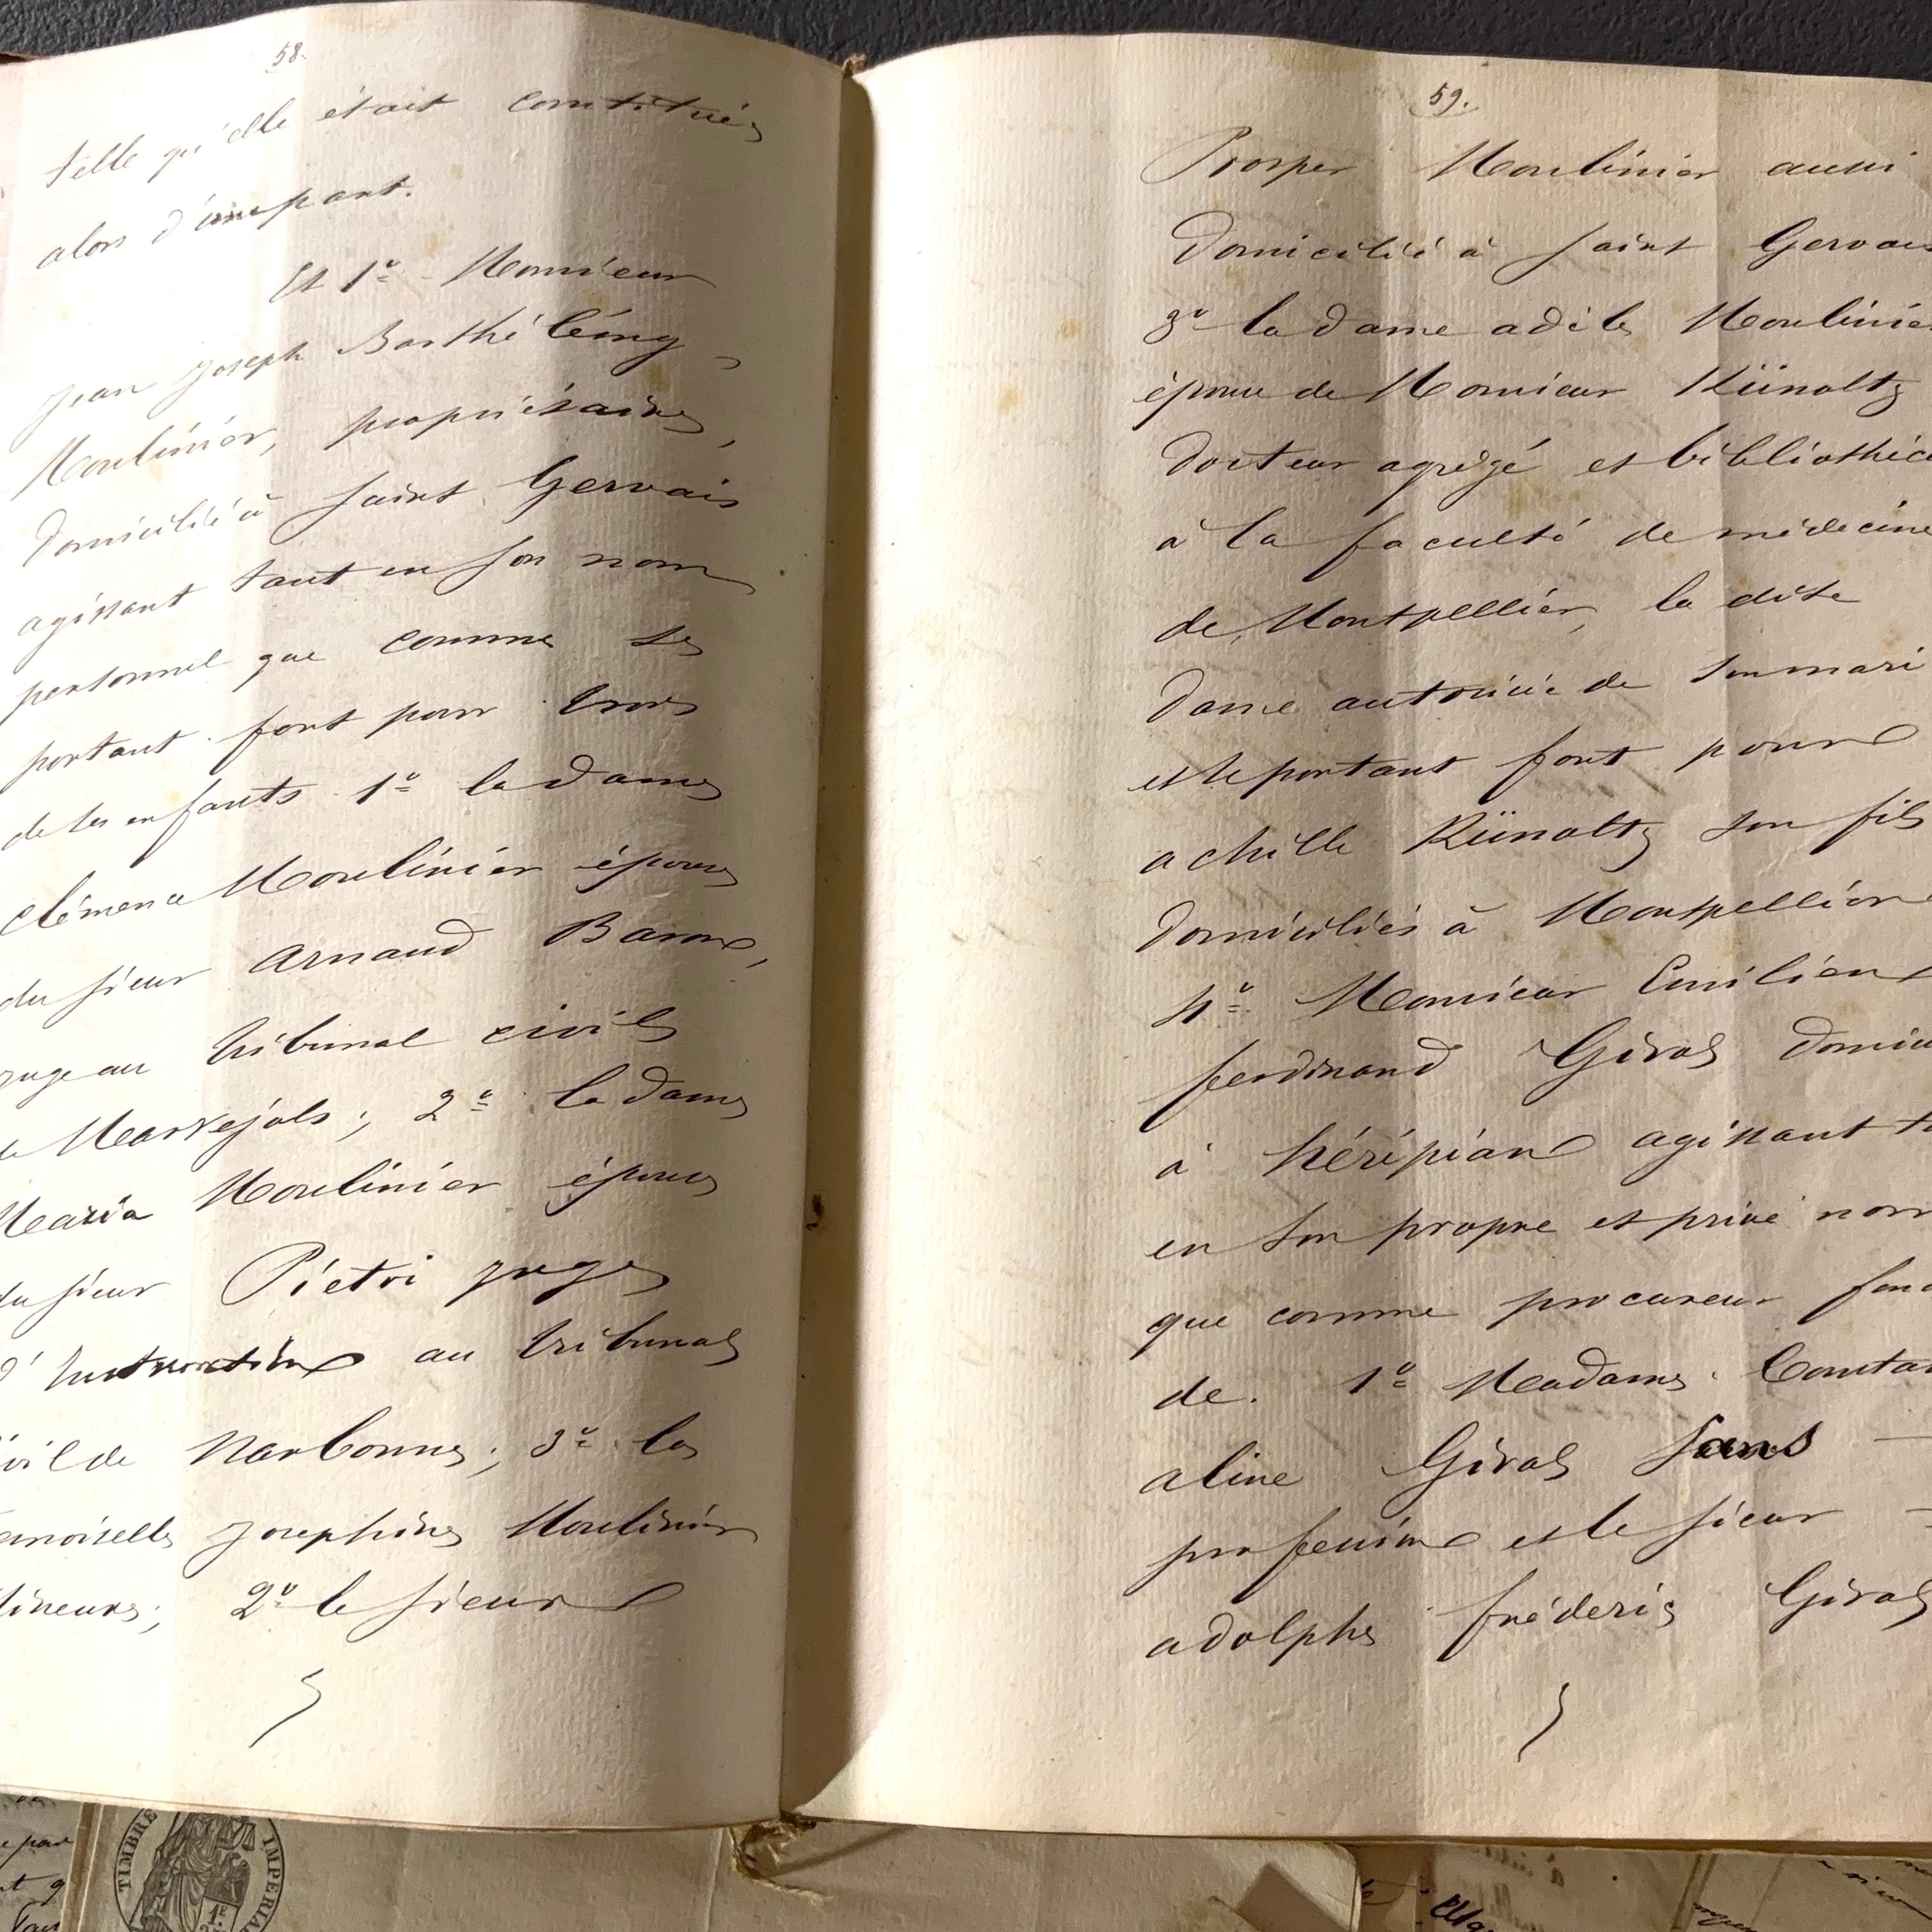 58.
telle qu'elle était constituée
alors d'une part.
Et 1º Monsieur
Jean Joseph Barthélémy
Moulinier, propriétaire,
domicilié à Saint Gervais
agissant tant en son nom
personnel que comme se
portant fort pour trois
de ses enfants 1º la dame
clémence Moulinier épouse
du sieur Arnaud Baron,
juge au tribunal civil
Marvejols; 2º la dame
Maria Moulinier épouse
du sieur Piétri juge
d'instruction au tribunal
civil de Narbonne; 3º la
emoiselle Josephine Moulinier
mineure; 2º le sieur
59.
Prosper Moulinier aussi
domicilié à Saint Gervais
3º la dame adèle Moulinier
épouse de Monsieur Künoltz
docteur agrégé et bibliothéc
à la faculté de médecine
de Montpellier, la dite
dame autorisée de son mari
et se portant fort pour
achille Künoltz son fils
domiciliés à Montpellier
4º Monsieur Emilien
ferdinand Giral domici
à hérépian agissant t
en son propre et privé nom
que comme procureur fon
de. 1º Madame Constan
aline Giral sans
profession et le sieur
adolphe fréderic Giral
TIMBRE IMPERIAL
1F